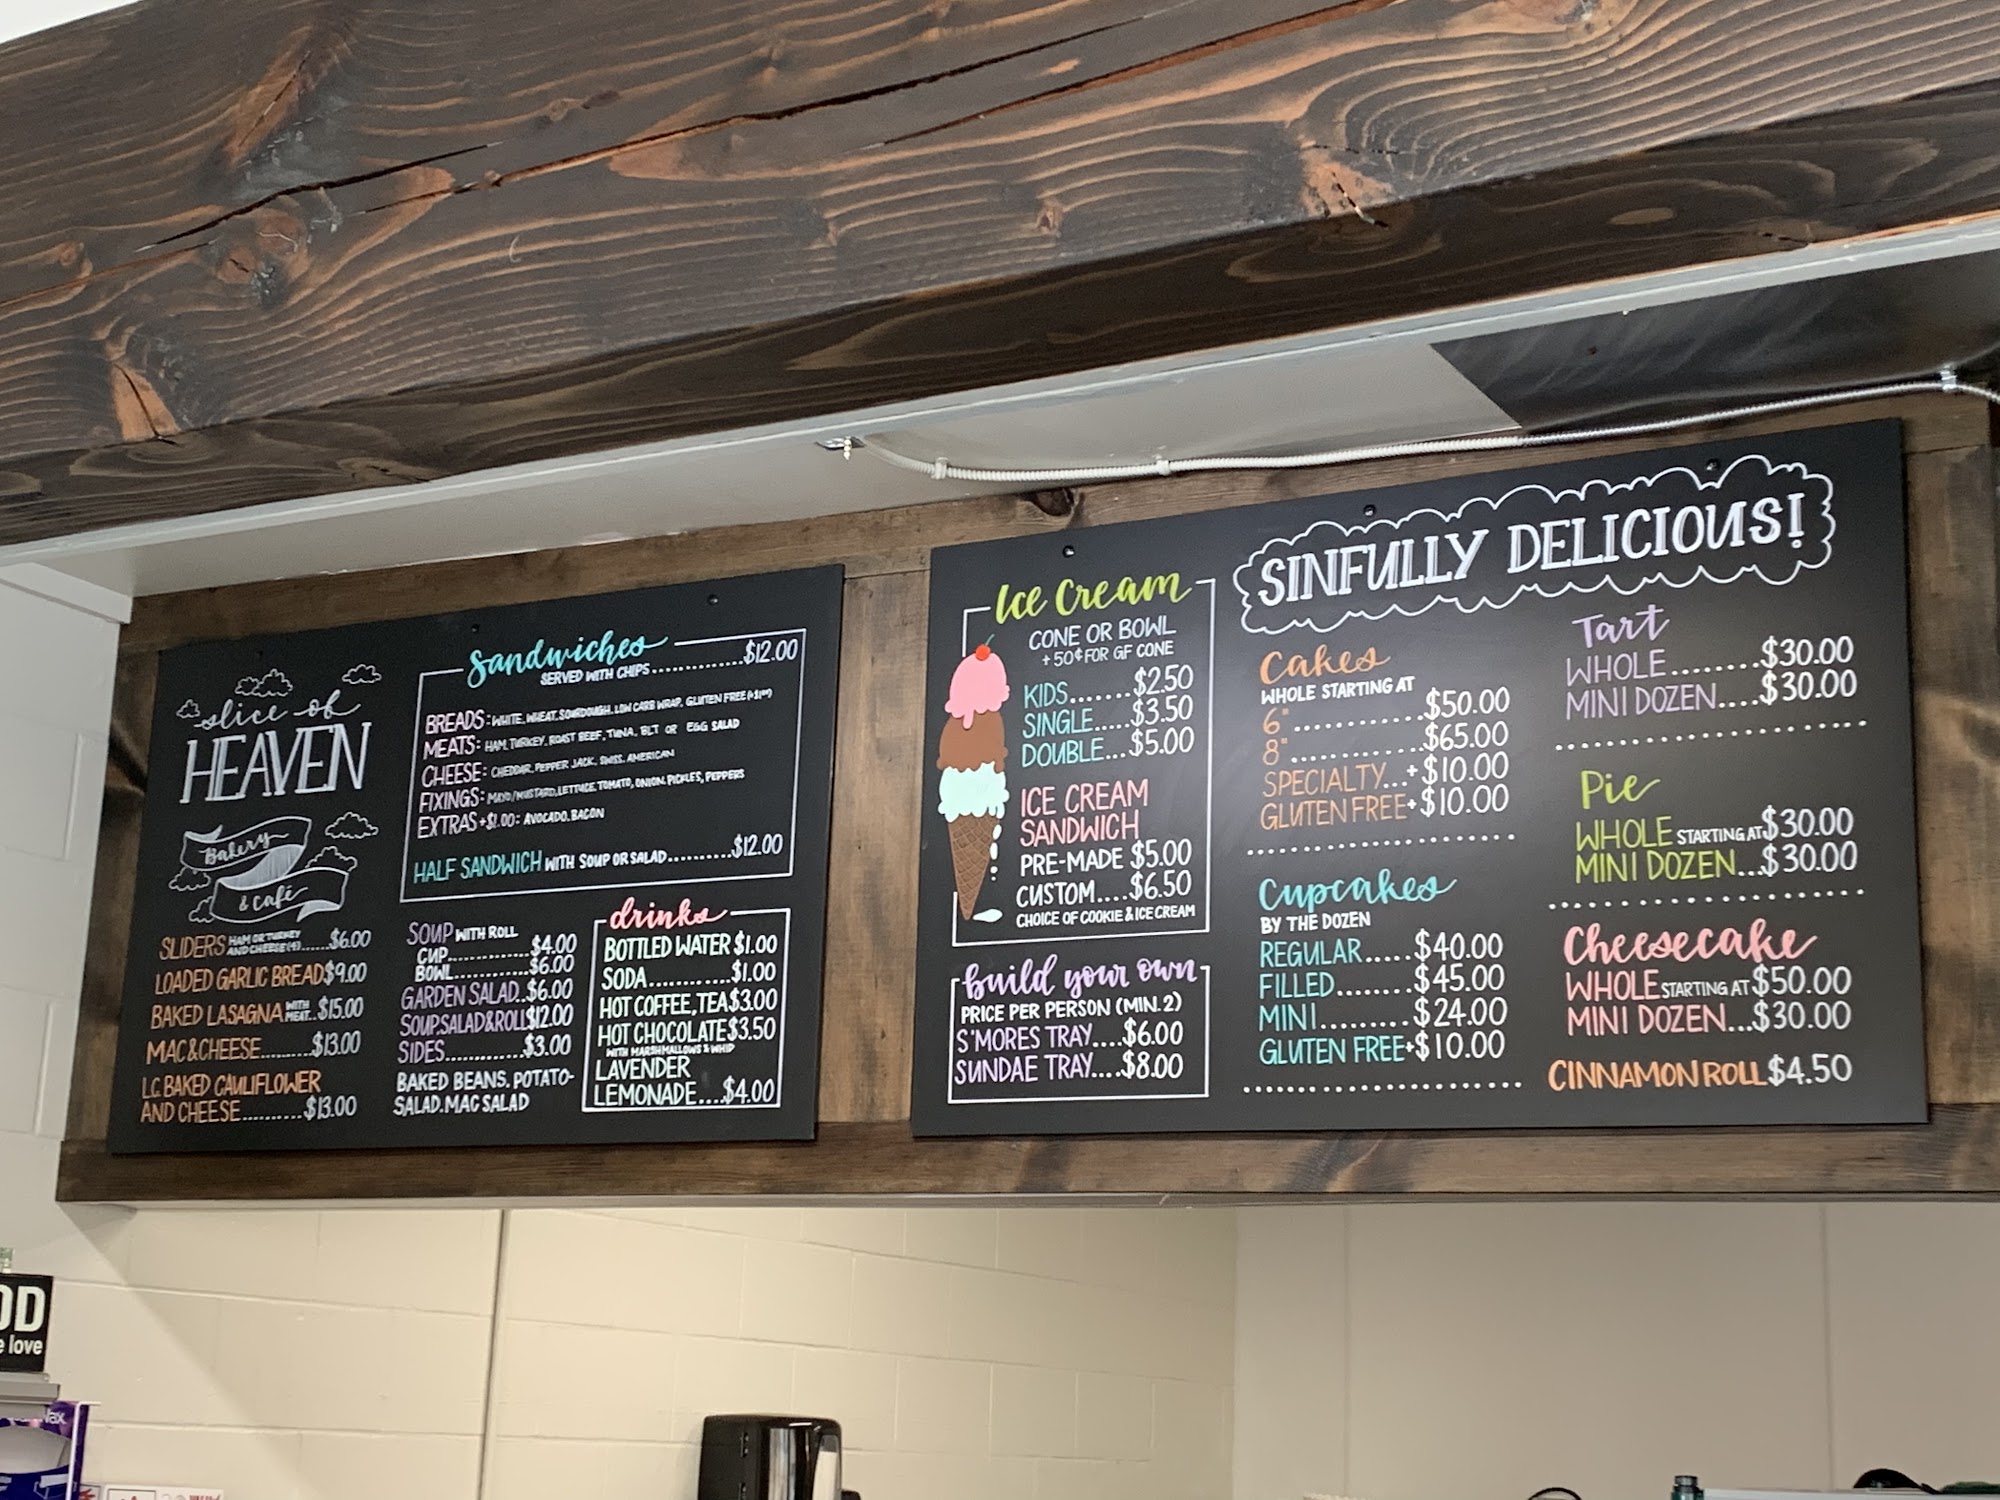 slice of
HEAVEN
Bakery
& Café
SLIDERS HAM OR TURKEY AND CHEESE (4)......$6.00
LOADED GARLIC BREAD $9.00
BAKED LASAGNA WITH MEAT..$15.00
MAC & CHEESE..........$13.00
L.C. BAKED CAULIFLOWER
AND CHEESE..........$13.00
Sandwiches
SERVED WITH CHIPS..............$12.00
BREADS: WHITE, WHEAT, SOURDOUGH, LOW CARB WRAP, GLUTEN FREE (+$1.00)
MEATS: HAM, TURKEY, ROAST BEEF, TUNA, BLT OR EGG SALAD
CHEESE: CHEDDAR, PEPPER JACK, SWISS, AMERICAN
FIXINGS: MAYO/MUSTARD, LETTUCE, TOMATO, ONION, PICKLES, PEPPERS
EXTRAS +$1.00: AVOCADO, BACON
HALF SANDWICH WITH SOUP OR SALAD..........$12.00
SOUP WITH ROLL
CUP..............$4.00
BOWL.............$6.00
GARDEN SALAD..$6.00
SOUP, SALAD & ROLL $12.00
SIDES............$3.00
BAKED BEANS, POTATO-
SALAD, MAC SALAD
drinks
BOTTLED WATER $1.00
SODA.............$1.00
HOT COFFEE, TEA $3.00
HOT CHOCOLATE $3.50
WITH MARSHMALLOWS & WHIP
LAVENDER
LEMONADE....$4.00
Ice Cream
CONE OR BOWL
+ 50¢ FOR GF CONE
KIDS.......$2.50
SINGLE.....$3.50
DOUBLE...$5.00
ICE CREAM
SANDWICH
PRE-MADE $5.00
CUSTOM....$6.50
CHOICE OF COOKIE & ICE CREAM
build your own
PRICE PER PERSON (MIN. 2)
S'MORES TRAY....$6.00
SUNDAE TRAY....$8.00
SINFULLY DELICIOUS!
Cakes
WHOLE STARTING AT
6"..............$50.00
8"..............$65.00
SPECIALTY...+$10.00
GLUTEN FREE+$10.00
Cupcakes
BY THE DOZEN
REGULAR.....$40.00
FILLED........$45.00
MINI.........$24.00
GLUTEN FREE+$10.00
Tart
WHOLE........$30.00
MINI DOZEN....$30.00
Pie
WHOLE STARTING AT $30.00
MINI DOZEN...$30.00
Cheesecake
WHOLE STARTING AT $50.00
MINI DOZEN...$30.00
CINNAMON ROLL $4.50
OD
e love